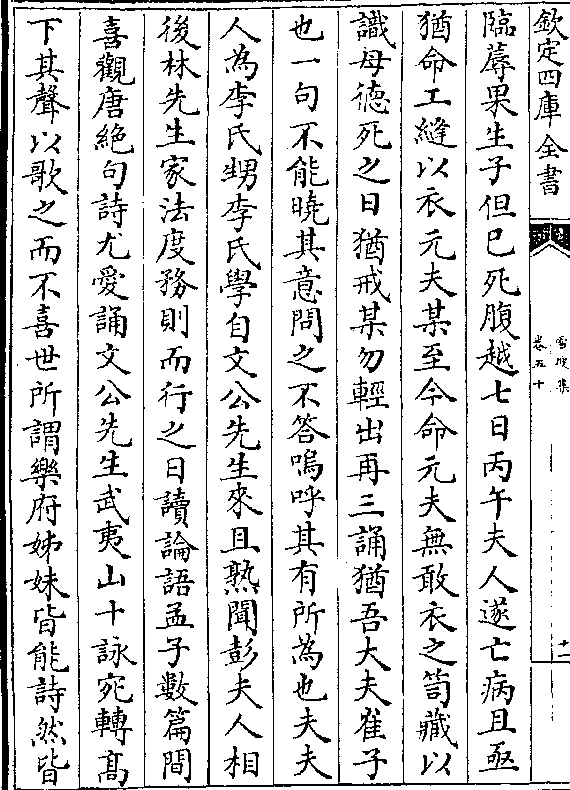 欽定四庫全書
雪坡集
卷五十
十一
臨蓐果生子但已死腹越七日丙午夫人遂亡病且亟
猶命工縫以衣元夫某至今命元夫無敢衣之笥藏以
識母徳死之日猶戒某勿輕出再三誦猶吾大夫崔子
也一句不能曉其意問之不答嗚呼其有所為也夫夫
人為李氏甥李氏學自文公先生來且熟聞彭夫人相
後林先生家法度務則而行之日讀論語孟子數篇間
喜觀唐絶句詩尤愛誦文公先生武夷山十詠宛轉髙
下其聲以歌之而不喜世所謂樂府姊妹皆能詩然皆